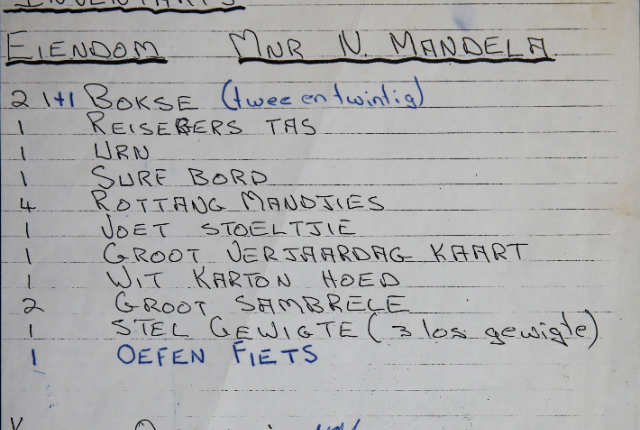 EIENDOM MNR N. MANDELA
2 1+1 BOKSE (twee en twintig)
1 REISEGERS TAS
1 URN
1 SURF BORD
4 ROTTANG MANDJIES
1 VOET STOELTJIE
1 GROOT VERJAARDAG KAART
1 WIT KARTON HOED
2 GROOT SAMBRELE
1 STEL GEWIGTE (3 los gewigte)
1 OEFEN FIETS